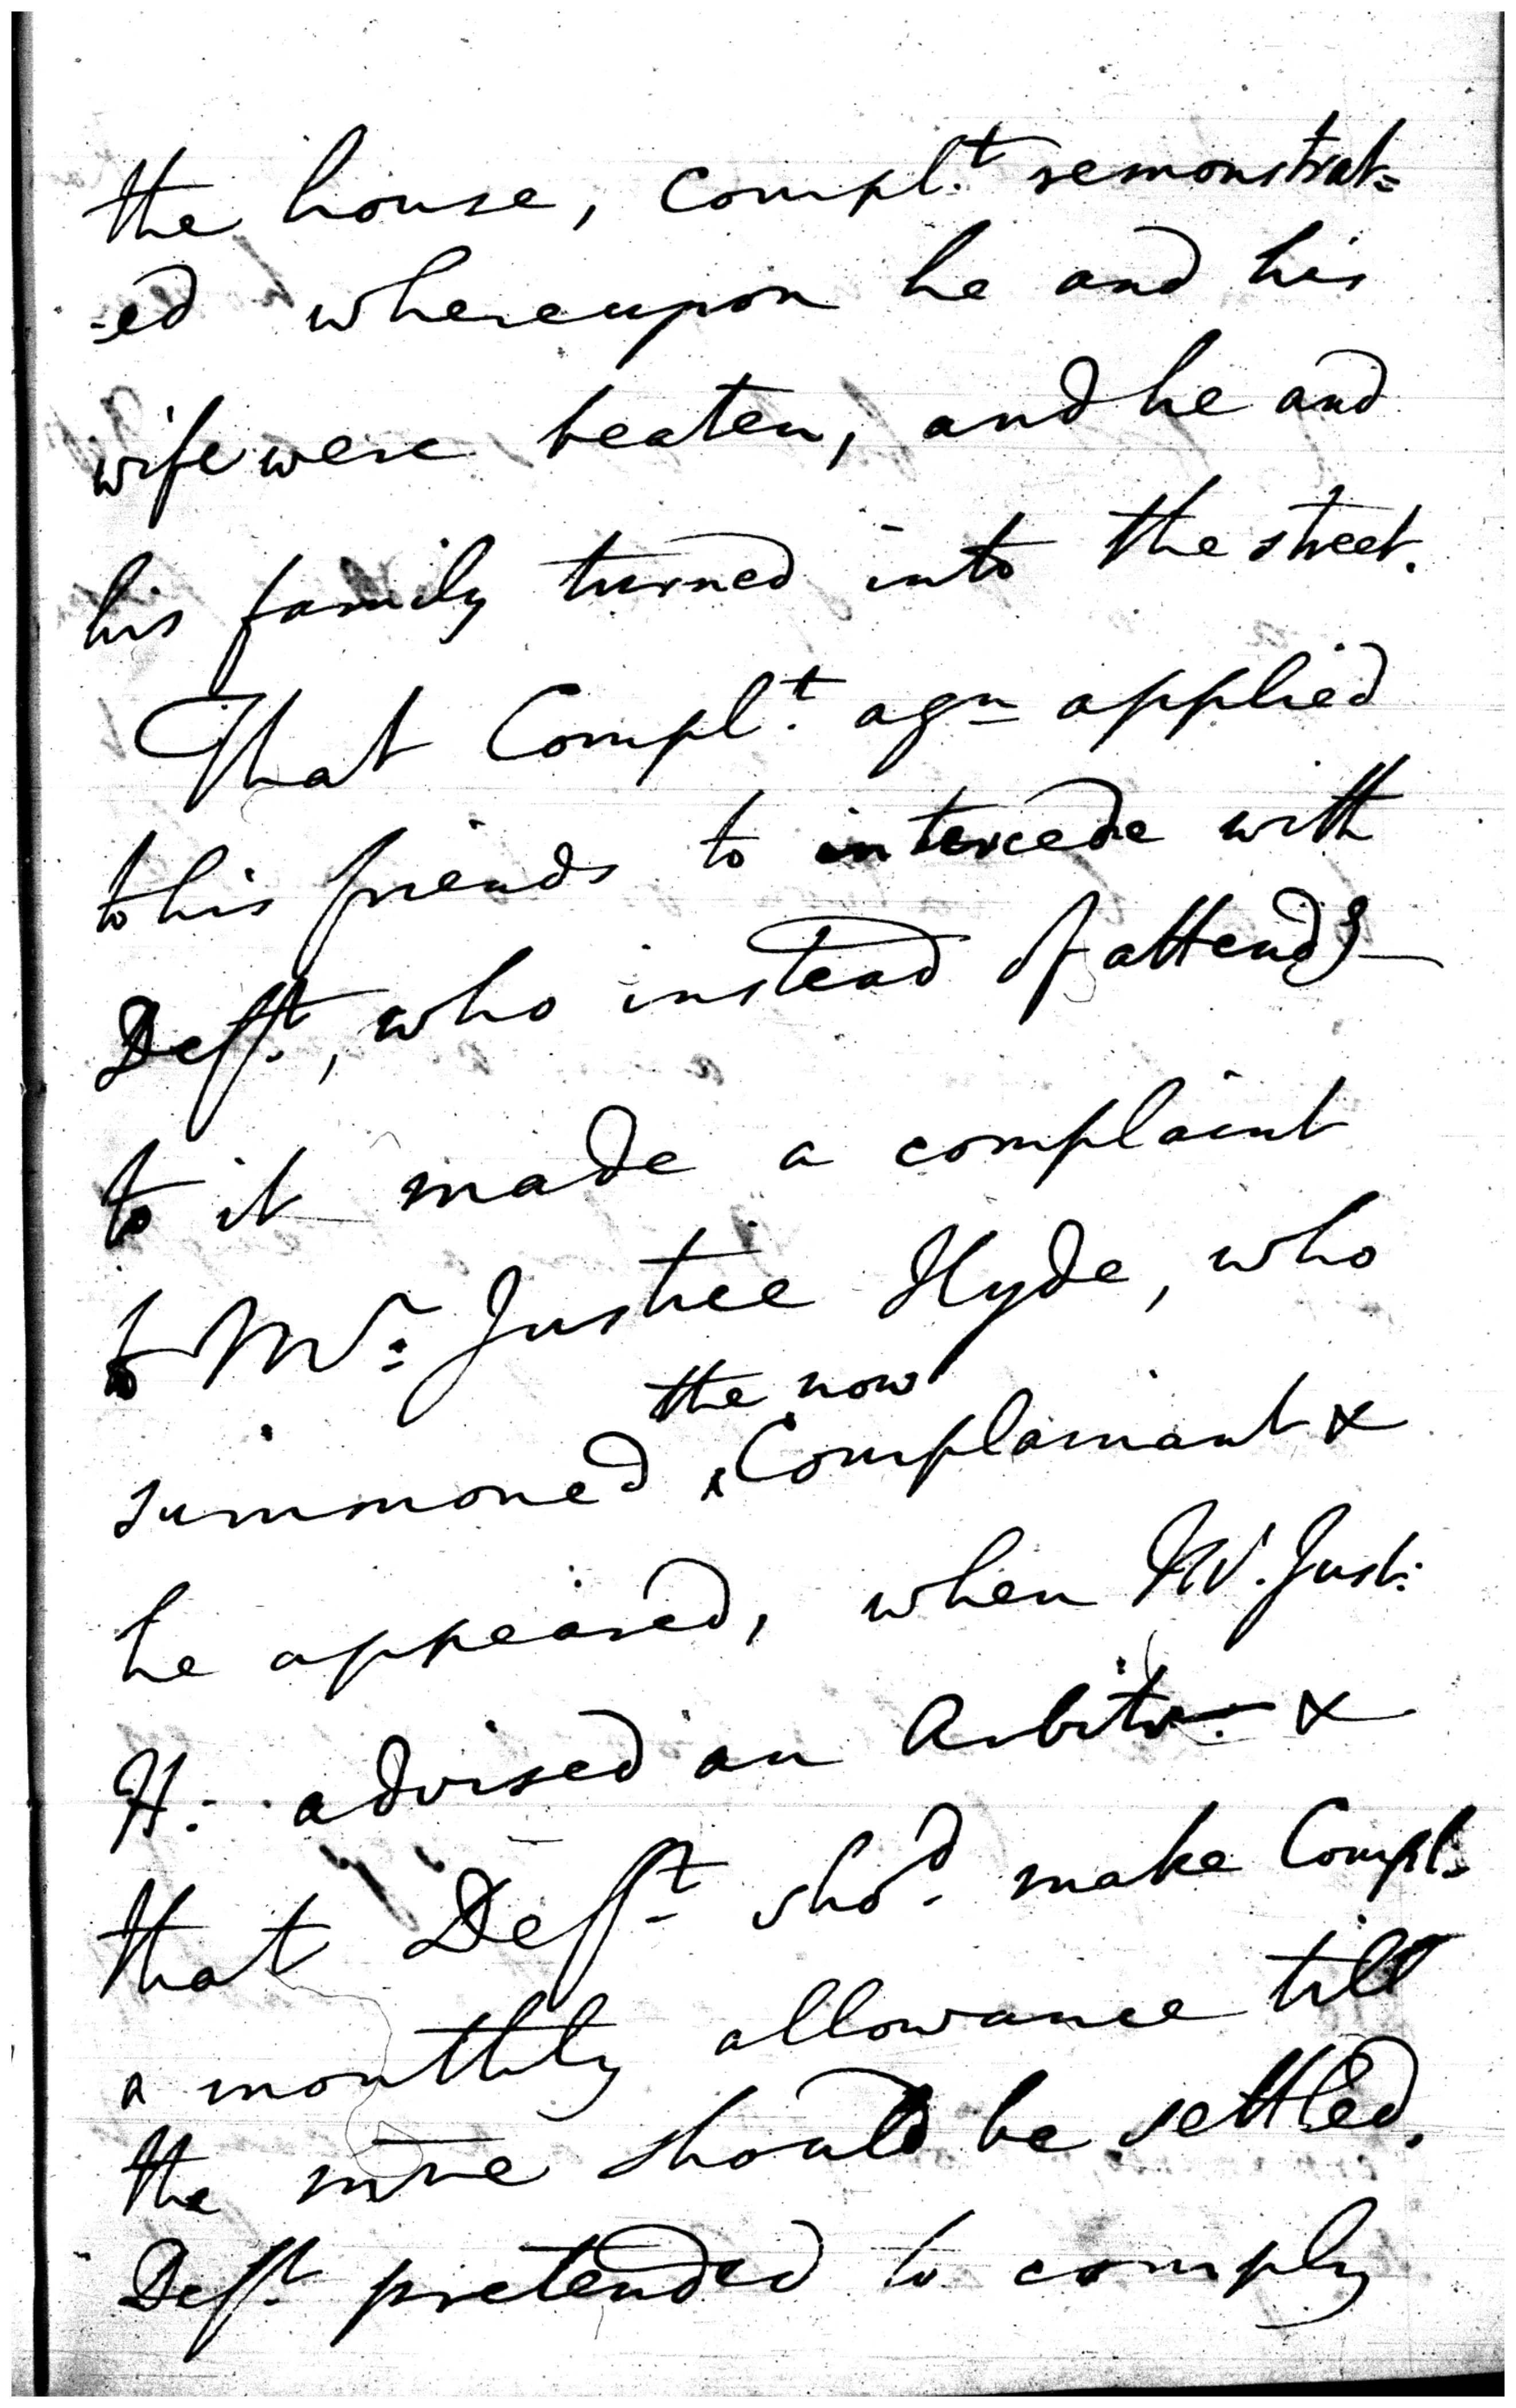 the house, Compl.t remonstrat=
=ed whereupon he and his
wife were beaten, and he and
his family turned into the street.
That Compl.t agn applied
to his friends to intercede with
Deft., who instead of attendg
to it made a complaint
to Mr. Justice Hyde, who
the now
summoned ^ Complainant &
he appeared, when Mr. Just:
H: advised an Arbitr. &
that Deft. shod. make Compl.
a monthly allowance till
the should be settled.
Deft. pretended to comply